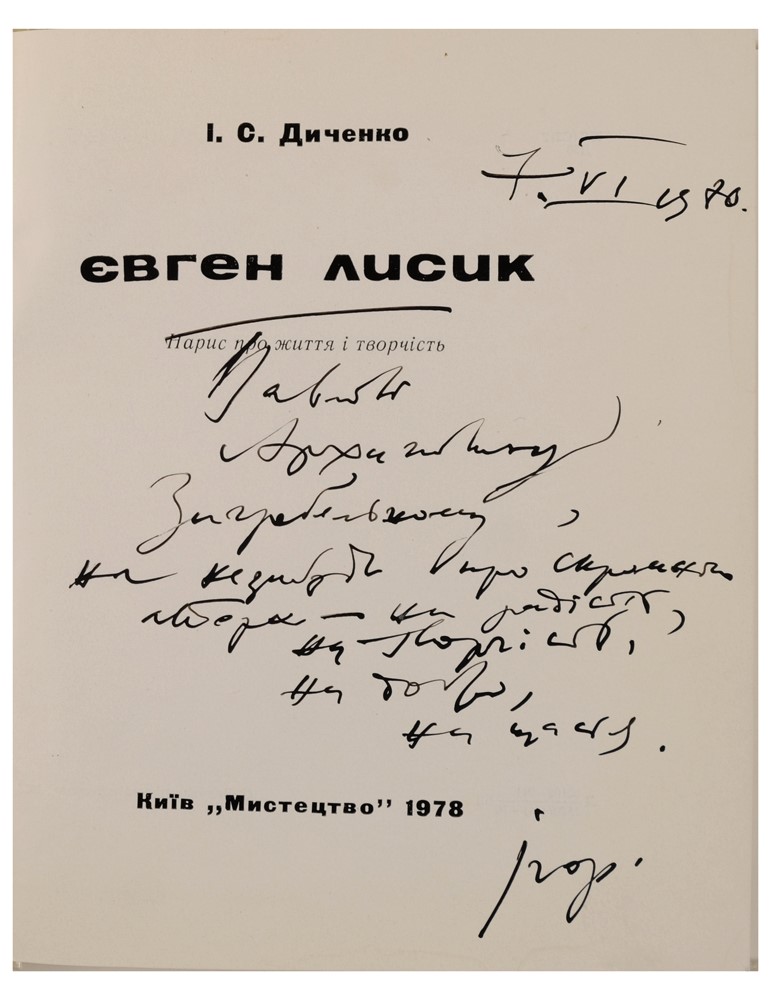 І. С. Диченко
7. VI 1978.
ЄВГЕН ЛИСИК
Нарис про життя і творчість
Павлові
Архиповичу
Загребельному,
на незабудь про скромного
автора — на радість,
на творчість,
на добро,
на щастя.
Київ „Мистецтво” 1978
Ігор.